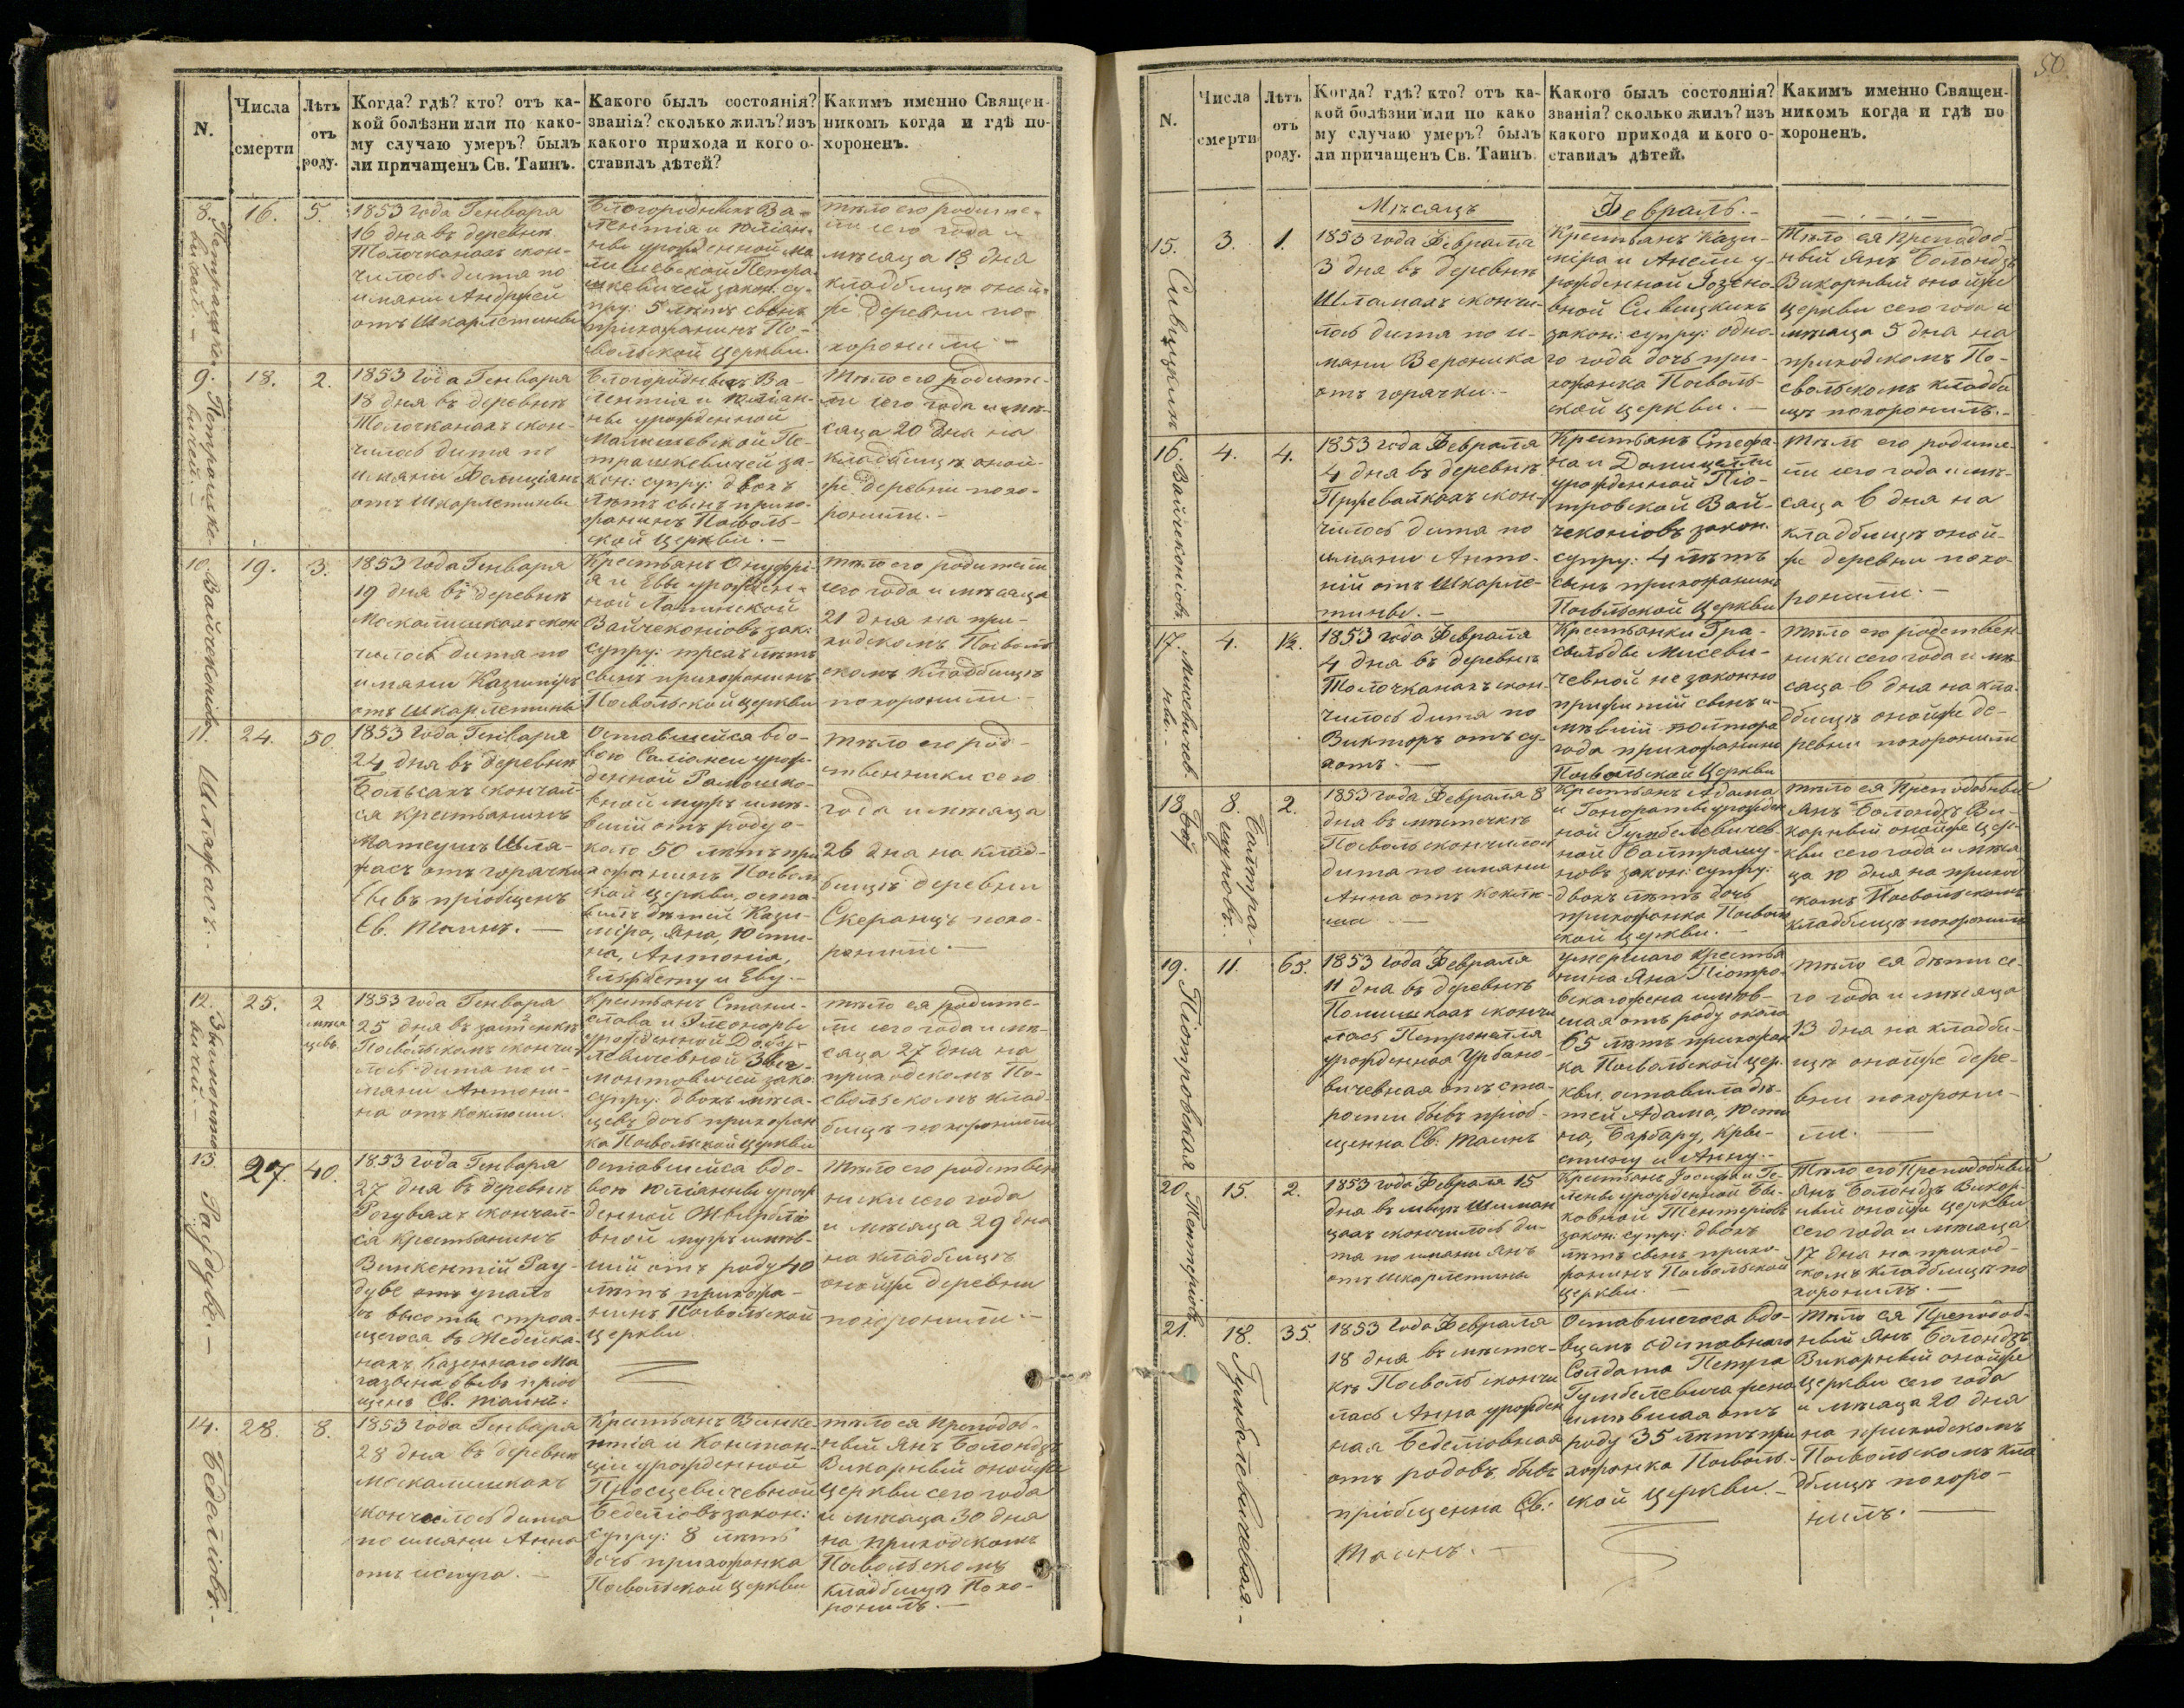 50.
N.
Числа
смерти
Лѣтъ
отъ
роду.
Когда? гдѣ? кто? отъ ка-
кой болѣзни или по како-
му случаю умеръ? былъ
ли причащенъ Св. Таинъ.
Какого былъ состоянія?
званія? сколько жилъ? изъ
какого прихода и кого о-
ставилъ дѣтей?
Какимъ именно Священ-
никомъ когда и гдѣ по-
хороненъ.
8.
16.
5.
1853 года Генваря
16 дня въ деревнѣ
Толочканахъ скон-
чилось дитя по
имяни Андржей
отъ Шкарлетины
Благородныхъ Ва-
лентія и Юліан-
ны урожденной Ма-
лишевской Петра-
шкевичей закон: су-
пру: 5 лѣтъ сынъ
прихожанинъ По-
свольской церкви.
Тѣло его родите-
ли сего года и
мѣсяца 18 дня
кладбищѣ оной-
же деревни по-
хоронили —
9.
18.
2.
1853 года Генваря
18 дня въ деревнѣ
Толочканахъ скон-
чилось дитя по
имяни Фелиціянъ
отъ Шкарлетины
Благородныхъ Ва-
лентія и Юліан-
ны урожденной
Малишевской Пе-
трашкевичей за-
кон: супру: двохъ
лѣтъ сынъ прихо-
жанинъ Посволь-
ской церкви. —
Тѣло его родите-
ли сего года и мѣ-
сяца 20 дня на
кладбищѣ оной-
же деревни похо-
ронили. —
10.
Вайчеконіовъ
19.
3.
1853 года Генваря
19 дня въ деревнѣ
Москалишкахъ скон
чилось дитя по
имяни Казиміръ
отъ Шкарлетины
Крестьянъ Онуфрі-
я и Евы урожден-
ной Лапинской
Вайчеконіовъ зак:
супру: трехъ лѣтъ
сынъ прихожанинъ
Посвольской церкви
Тѣло его родители
сего года и мѣсяца
21 дня на при-
ходскомъ Посволь
скомъ кладбищѣ
похоронили.
11.
Шляжасъ. —
24.
50.
1853 года Генваря
24 дня въ деревнѣ
Больсахъ скончал-
ся крестьянинъ
Матеушъ Шля-
жасъ отъ горячки
бывъ пріобщенъ
Св. Таинъ. —
Оставшейся вдо-
вою Саломеи урож-
денной Рамошко-
вной мужъ имѣ-
вшій отъ роду о-
коло 50 лѣтъ при
хожанинъ Посволь
ской церкви, оста-
вилъ дѣтей Кази-
міра, Яна, Юсти-
на, Антонія,
Ельжбету и Еву. —
Тѣло его род-
ственники сего
года и мѣсяца
26 дня на клад-
бищѣ деревни
Скеранцъ похо-
ронили. —
12.
25.
2
мѣся
цовъ.
1853 года Генваря
25 дня въ застенкѣ
Посвольскомъ скончи
лось дитя по и-
мяни Антони-
на отъ коклюши.
Крестьянъ Стани-
слава и Элеоноры
урожденной
Зыг-
монтовичей зако
супру: двохъ мѣся-
цевъ дочь прихожан
ка Посвольской церкви
Тѣло ея родите-
ли сего года и мѣ-
сяца 27 дня на
приходскомъ По-
свольскомъ клад-
бищѣ похоронили
13.
Раудуве. —
27.
40.
1853 года Генваря
27 дня въ деревнѣ
Рогувахъ скончал-
ся крестьянинъ
Винкентій Рау-
дуве отъ упаль
съ высоты строя-
щегося въ Медейка-
нахъ Казеннаго Ма
газына бывъ пріоб
щенъ Св. Таинъ.
Оставшейся вдо-
вою Юліянны урож
денной
вной мужъ имѣв-
шій отъ роду 40
лѣтъ прихожа-
нинъ Посвольской
церкви
Тѣло его родствен
ники сего года
и мѣсяца 29 дня
на кладбищѣ
онойже деревни
похоронили. —
14.
Беделіовъ. —
28.
8.
1853 года Генваря
28 дня въ деревнѣ
Москалишкахъ
скончилось дитя
по имяни Анна
отъ испуга. —
Крестьянъ Винке-
нтія и Констан-
ціи урожденной
Просцевичевной
Беделіовъ закон:
супру: 8 лѣтъ
дочь прихожанка
Посвольской церкви
Тѣло ея преподоб-
ный Янъ Болондзъ
Викарный онойже
церкви сего года
и мѣсяца 30 дня
на приходскомъ
Посвольскомъ
кладбищѣ похо-
ронилъ. —
N.
Числа
смерти
Лѣтъ
отъ
роду.
Когда? гдѣ? кто? отъ ка-
кой болѣзни или по како
му случаю умеръ? былъ
ли причащенъ Св. Таинъ.
Какого былъ состоянія?
званія? сколько жилъ? изъ
какого прихода и кого о-
ставилъ дѣтей.
Какимъ именно Священ-
никомъ когда и гдѣ по
хороненъ.
Мѣсяцъ
Февраль. —
15.
Сивицкихъ
3.
1.
1853 года Февраля
3 дня въ деревнѣ
Шламахъ скончи-
лось дитя по и-
мяни Вероника
отъ горячки. —
Крестьянъ Кази-
міра и Анели у-
рожденной
вной Сивицкихъ
закон: супру: одно-
го года дочь при-
хожанка Посволь-
ской церкви. —
Тѣло ея преподоб-
ный Янъ Болондзъ
Викарный онойже
церкви сего года и
мѣсяца 5 дня на
приходскомъ По-
свольскомъ кладби
щѣ похоронилъ. —
16.
Вайчеконіовъ
4.
4.
1853 года Февраля
4 дня въ деревнѣ
Пржевалкахъ скон-
чилось дитя по
имяни Анто-
ній отъ Шкарле-
тины. —
Крестьянъ Стефа-
на и Домицелли
урожденной Піо-
тровской Вай-
чеконіовъ закон.
супру: 4 лѣтъ
сынъ прихожанинъ
Посвольской церкви
Тѣло его родите-
ли сего года и мѣ-
сяца 6 дня на
кладбищѣ оной-
же деревни похо-
ронили. —
17.
4.
1½.
1853 года Февраля
4 дня въ деревнѣ
Толочканахъ скон-
чилось дитя по
Викторъ отъ су-
хотъ. —
Крестьянки Гра-
сыльды Мисеви-
чевной не законно
прижитій сынъ и-
мѣвшій полтора
года прихожанинъ
Посвольской церкви
Тѣло его родствен-
ники сего года и мѣ-
сяца 6 дня на кла-
дбищѣ онойже де-
ревни похоронили
18.
8.
2.
1853 года Февраля 8
дня въ мѣстечкѣ
Посволь скончилось
дитя по имяни
Анна отъ коклю-
ша —
Крестьянъ Адама
и Гонораты урожден
ной Гумбелевичев-
ной Балтраму-
новъ закон: супру:
двохъ лѣтъ дочь
прихожанка Посволь
ской церкви. —
Тѣло ея преподобный
Янъ Болондзъ Ви-
карный онойже цер-
кви сего года и мѣся
ца 10 дня на приход
скомъ Посвольскомъ
кладбищѣ похоронилъ
19.
Піотровская
11.
65.
1853 года Февраля
11 дня въ деревнѣ
скончи
лась Петронелля
урожденная Урбано-
вичевная отъ ста-
рости бывъ пріоб-
щенна Св. Таинъ
умершаго крестья
нина Яна Піотро-
вскаго жена имѣв-
шая отъ роду около
65 лѣтъ прихожан
ка Посвольской цер-
кви, оставила дѣ-
тей Адама, Юсти
на, Барбару, Кры-
стину и Анну. —
Тѣло ея дѣти се-
го года и мѣсяца
13 дня на кладби-
щѣ онойже дере-
вни похорони-
ли. —
20.
15.
2.
1853 года Февраля 15
дня въ
скончилось ди-
тя по имяни Янъ
отъ шкарлетины
Крестьянъ Іосифа и
урожденной
ковной
закон: супру: двохъ
лѣтъ сынъ прихо-
жанинъ Посвольской
церкви. —
Тѣло его Преподобный
Янъ Болондзъ Викар-
ный онойже церкви
сего года и мѣсяца
17 дня на приход-
скомъ кладбищѣ по
хоронилъ. —
21.
Гумбелевичевая. —
18.
35.
1853 года Февраля
18 дня въ мѣстеч-
кѣ Посволь скончи
лась Анна урожден
ная Беделіовная
отъ родовъ бывъ
пріобщенна Св.
Таинъ. —
Оставшегося вдо-
вцемъ одставнаго
Солдата Петра
Гумбелевича жена
имѣвшая отъ
роду 35 лѣтъ при
хожанка Посволь-
ской церкви. —
Тѣло ея Преподоб-
ный Янъ Болондзъ
Викарный онойже
церкви сего года
и мѣсяца 20 дня
на приходскомъ
Посвольскомъ кла
дбищѣ похоро-
нилъ. —